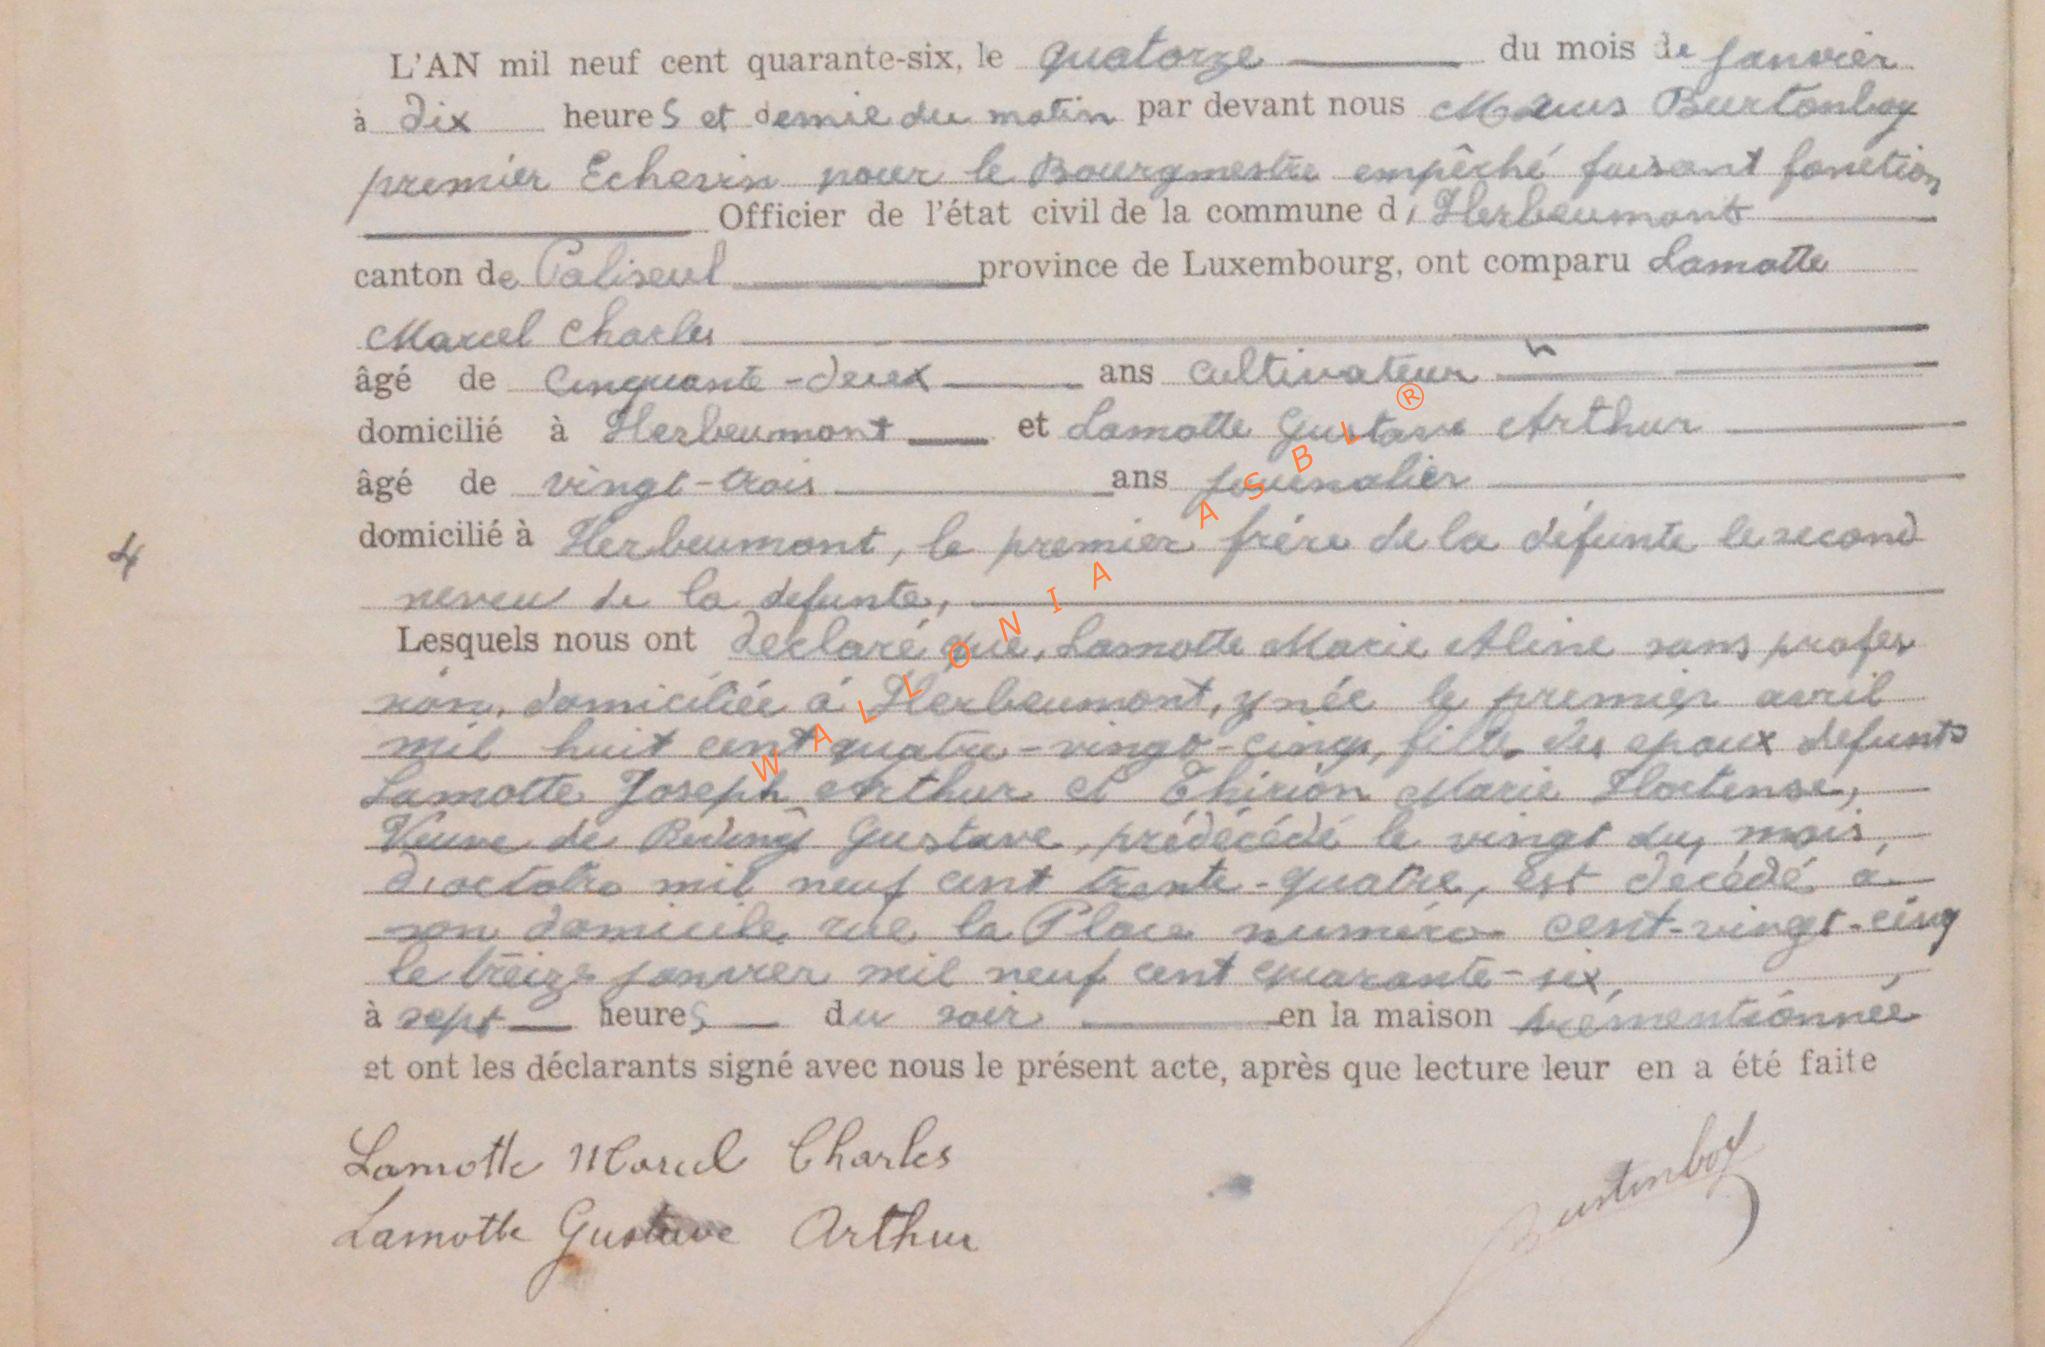 L'AN mil neuf cent quarante-six, le quatorze du mois de janvier
à dix heures et demie du matin par devant nous Burtonboy
premier Echevin pour le Bourgmestre empêché faisant fonction
Officier de l'état civil de la commune d'Herbeumont
canton de Paliseul province de Luxembourg, ont comparu Lamotte
Marcel Charles
âgé de cinquante-deux ans cultivateur
domicilié à Herbeumont et Lamotte Gustave Arthur
âgé de vingt-trois ans journalier
domicilié à Herbeumont, le premier frère de la défunte le second
4
neveu de la defunte,
Lesquels nous ont declaré que, Lamotte Marie Aline sans profes
sion, domiciliée à Herbeumont, y née le premier avril
mil huit cent quatre-vingt-cinq, fille des epoux defunts
Lamotte Joseph Arthur et Thirion Marie Hortense,
Veuve de Gustave, prédécédé le vingt du mois
d'octobre mil neuf cent trente-quatre, est décédé à
son domicile, rue la Place numéro cent-vingt-cinq
le treize janvier mil neuf cent quarante-six,
à sept heures du soir en la maison prémentionnée
et ont les déclarants signé avec nous le présent acte, après que lecture leur en a été faite
Lamotte Marcel Charles
Lamotte Gustave Arthur
Burtonboy
WALLONIA ASBL ®